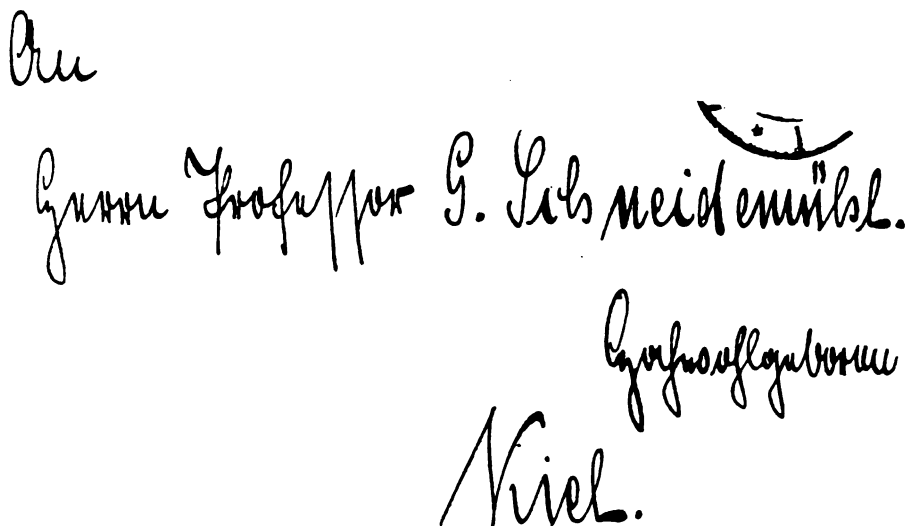 An
Herrn Professor G. Schneidemühl.
Hochwohlgeboren
Kiel.